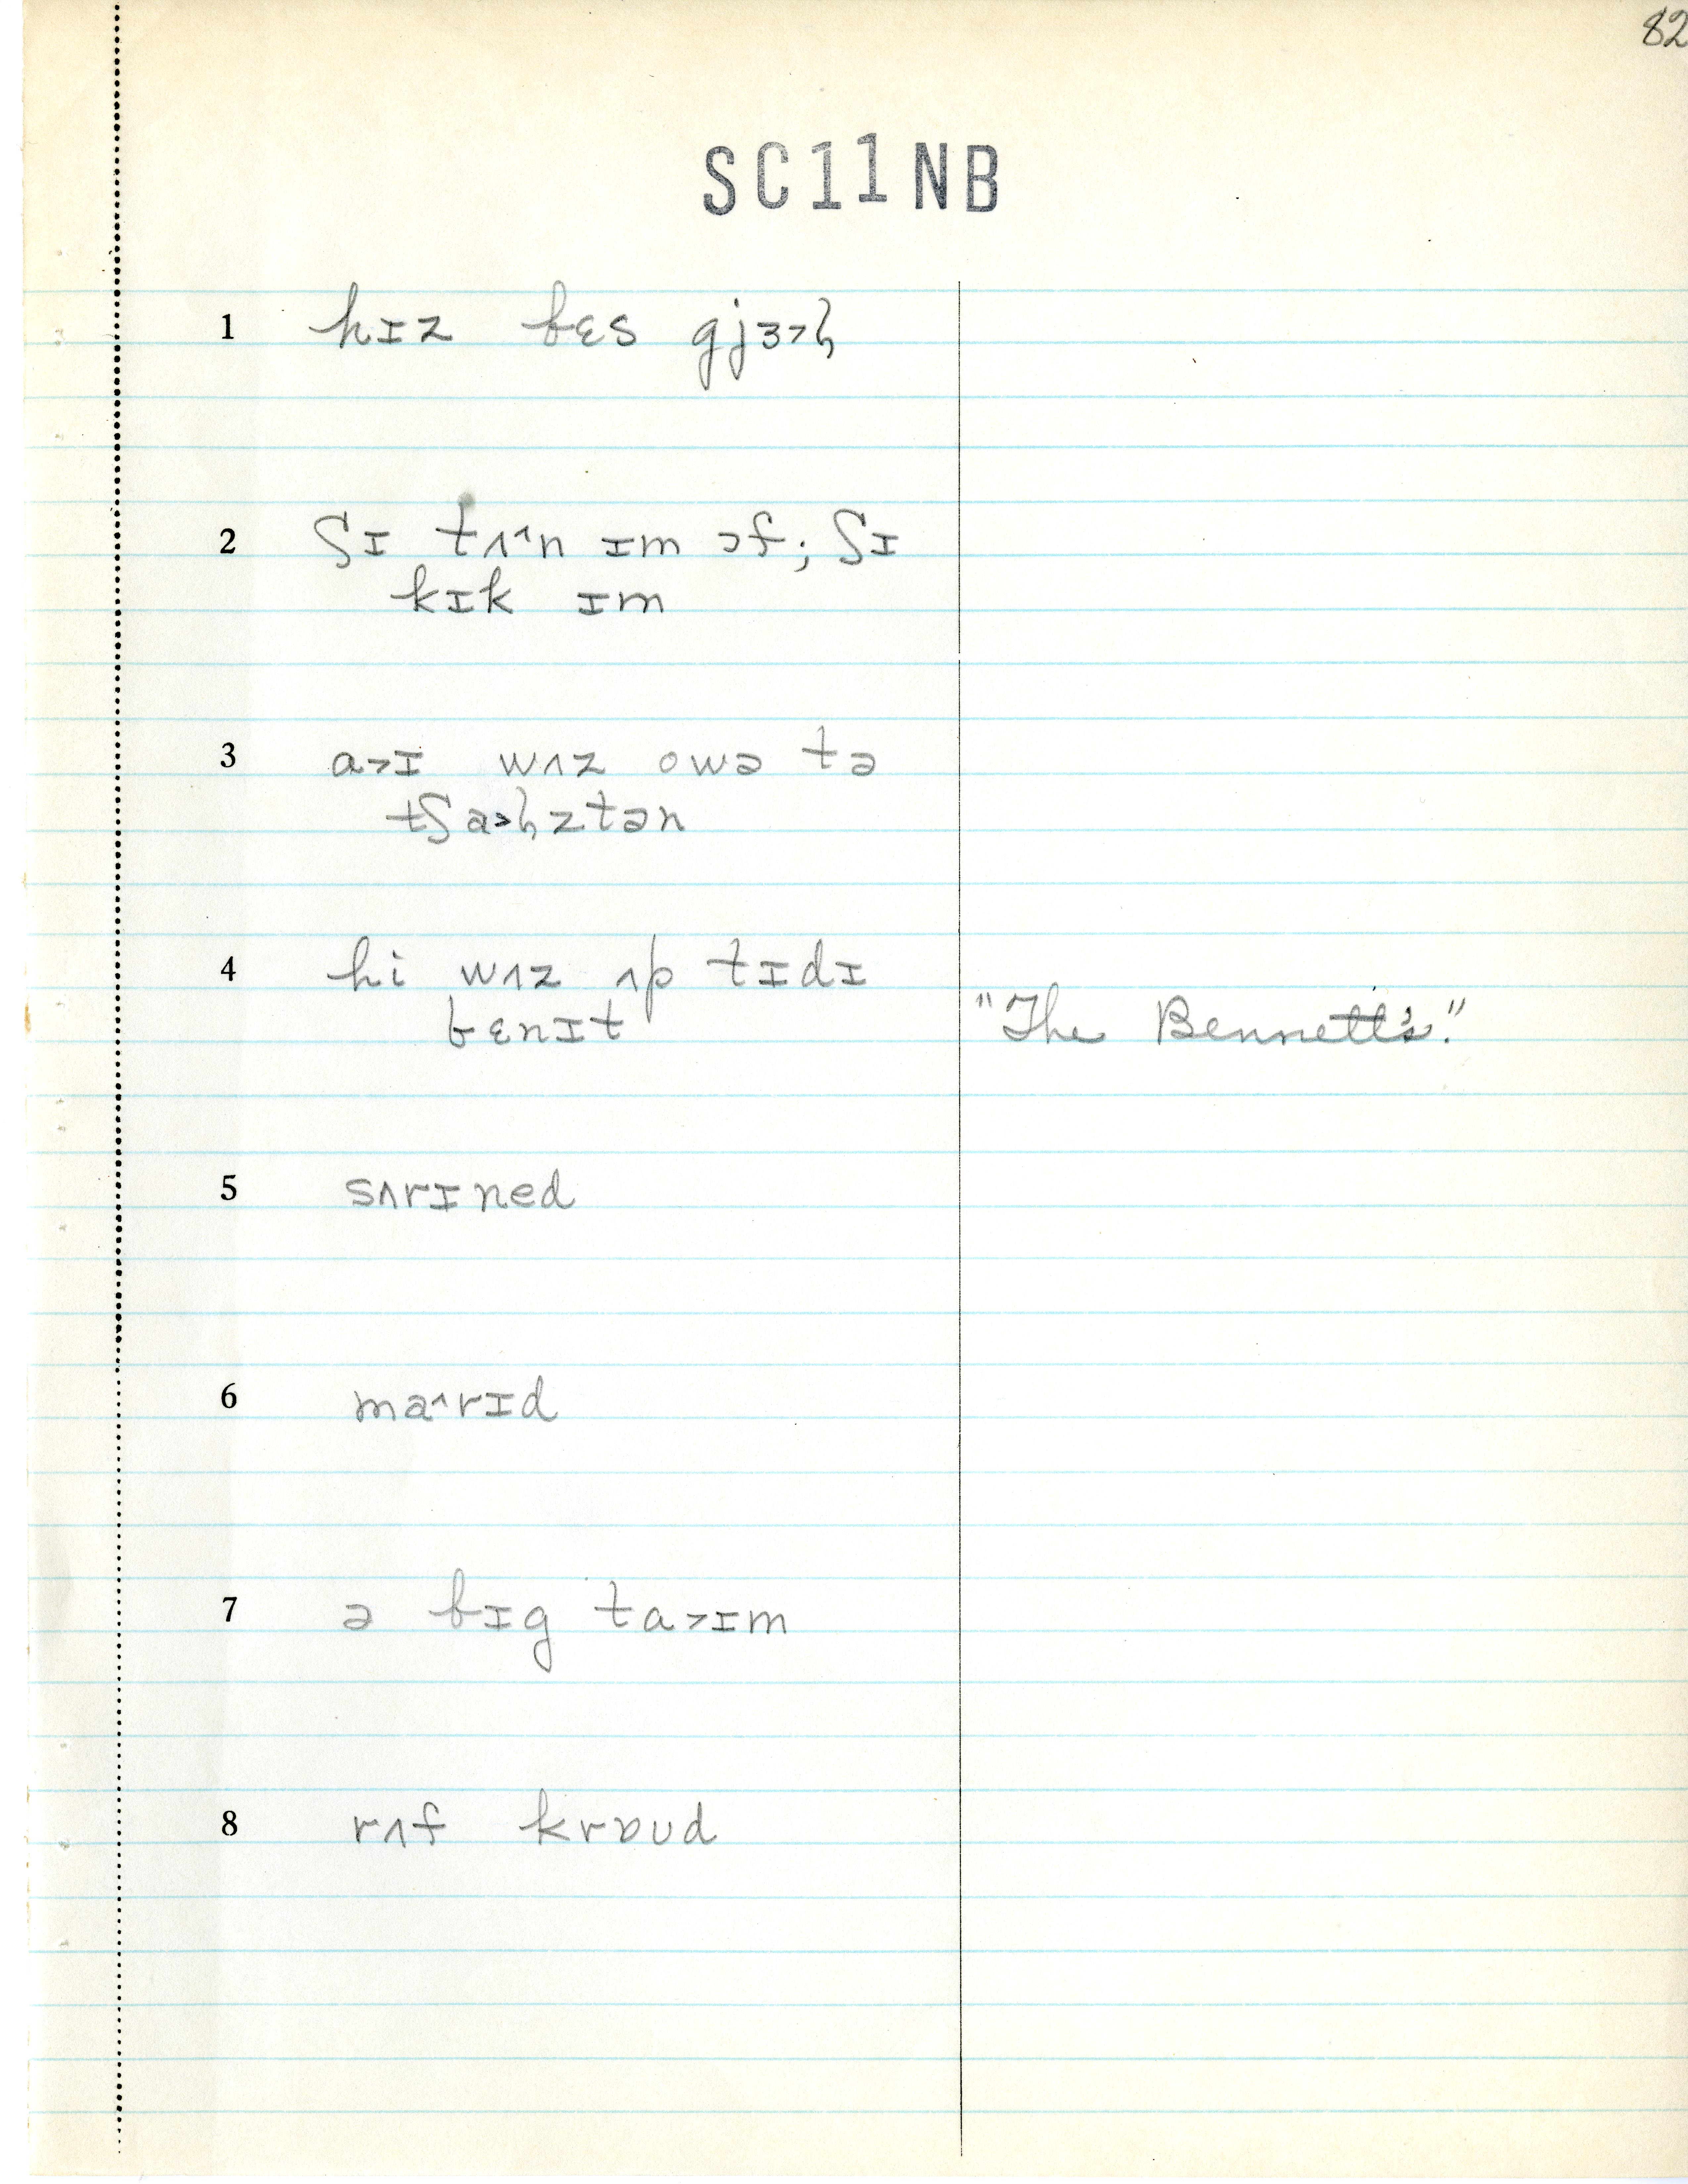 82
SC11NB
1 hɪz bɛs gjɜ˃ɫ
2 ʃɪ tʌ˄n ɪm ɔf; ʃɪ
kɪk ɪm
3 a˃ɪ wʌz owə tə
tʃa˃ɫztən
4 hi wʌz ʌp tɪdɪ
bɛnɪt "The Bennett's."
5 sʌrɪned
6 ma˄rɪd
7 ə bɪg ta˃ɪm
8 rʌf krɒʊd